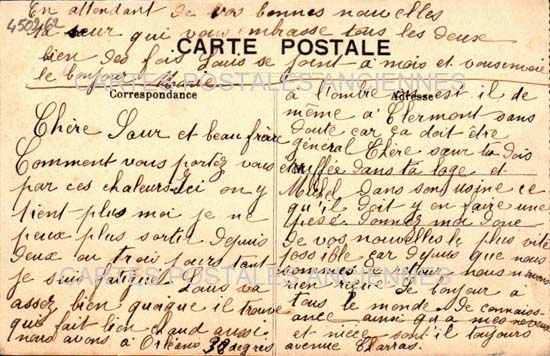 En attendant de vos bonnes nouvelles
4502162
ta sœur qui vous embrasse tous les deux
CARTE POSTALE
bien des fois Louis se joint à moi et vous envoie
le bonjour
CARTES POSTALES ANCIENNES
Correspondance
Adresse
Chère Sœur et beau frère
Comment vous portez vous
par ces chaleurs ici on y
tient plus moi je ne
peux plus sortir depuis
deux ou trois jours tant
je suis fatigué Louis va
assez bien quoique il trouve
qu'il fait bien chaud aussi
nous avons à Orléans 38 degrés
à l'ombre en est il de
même à Clermont sans
doute car ça doit être
général Chère sœur tu dois
étouffée dans ta loge et
Michel dans son usine ce
qu'il doit y en faire une
pesé. Donnez moi donc
de vos nouvelles le plus vite
possible car depuis que nous
sommes de retour nous n'avons
rien reçu le bonjour a
tous le monde de connaiss-
ance ainsi qu'a mes neveux
et nièce sont il toujours
avenue Charras
CARTES POSTALES ANCIENNES